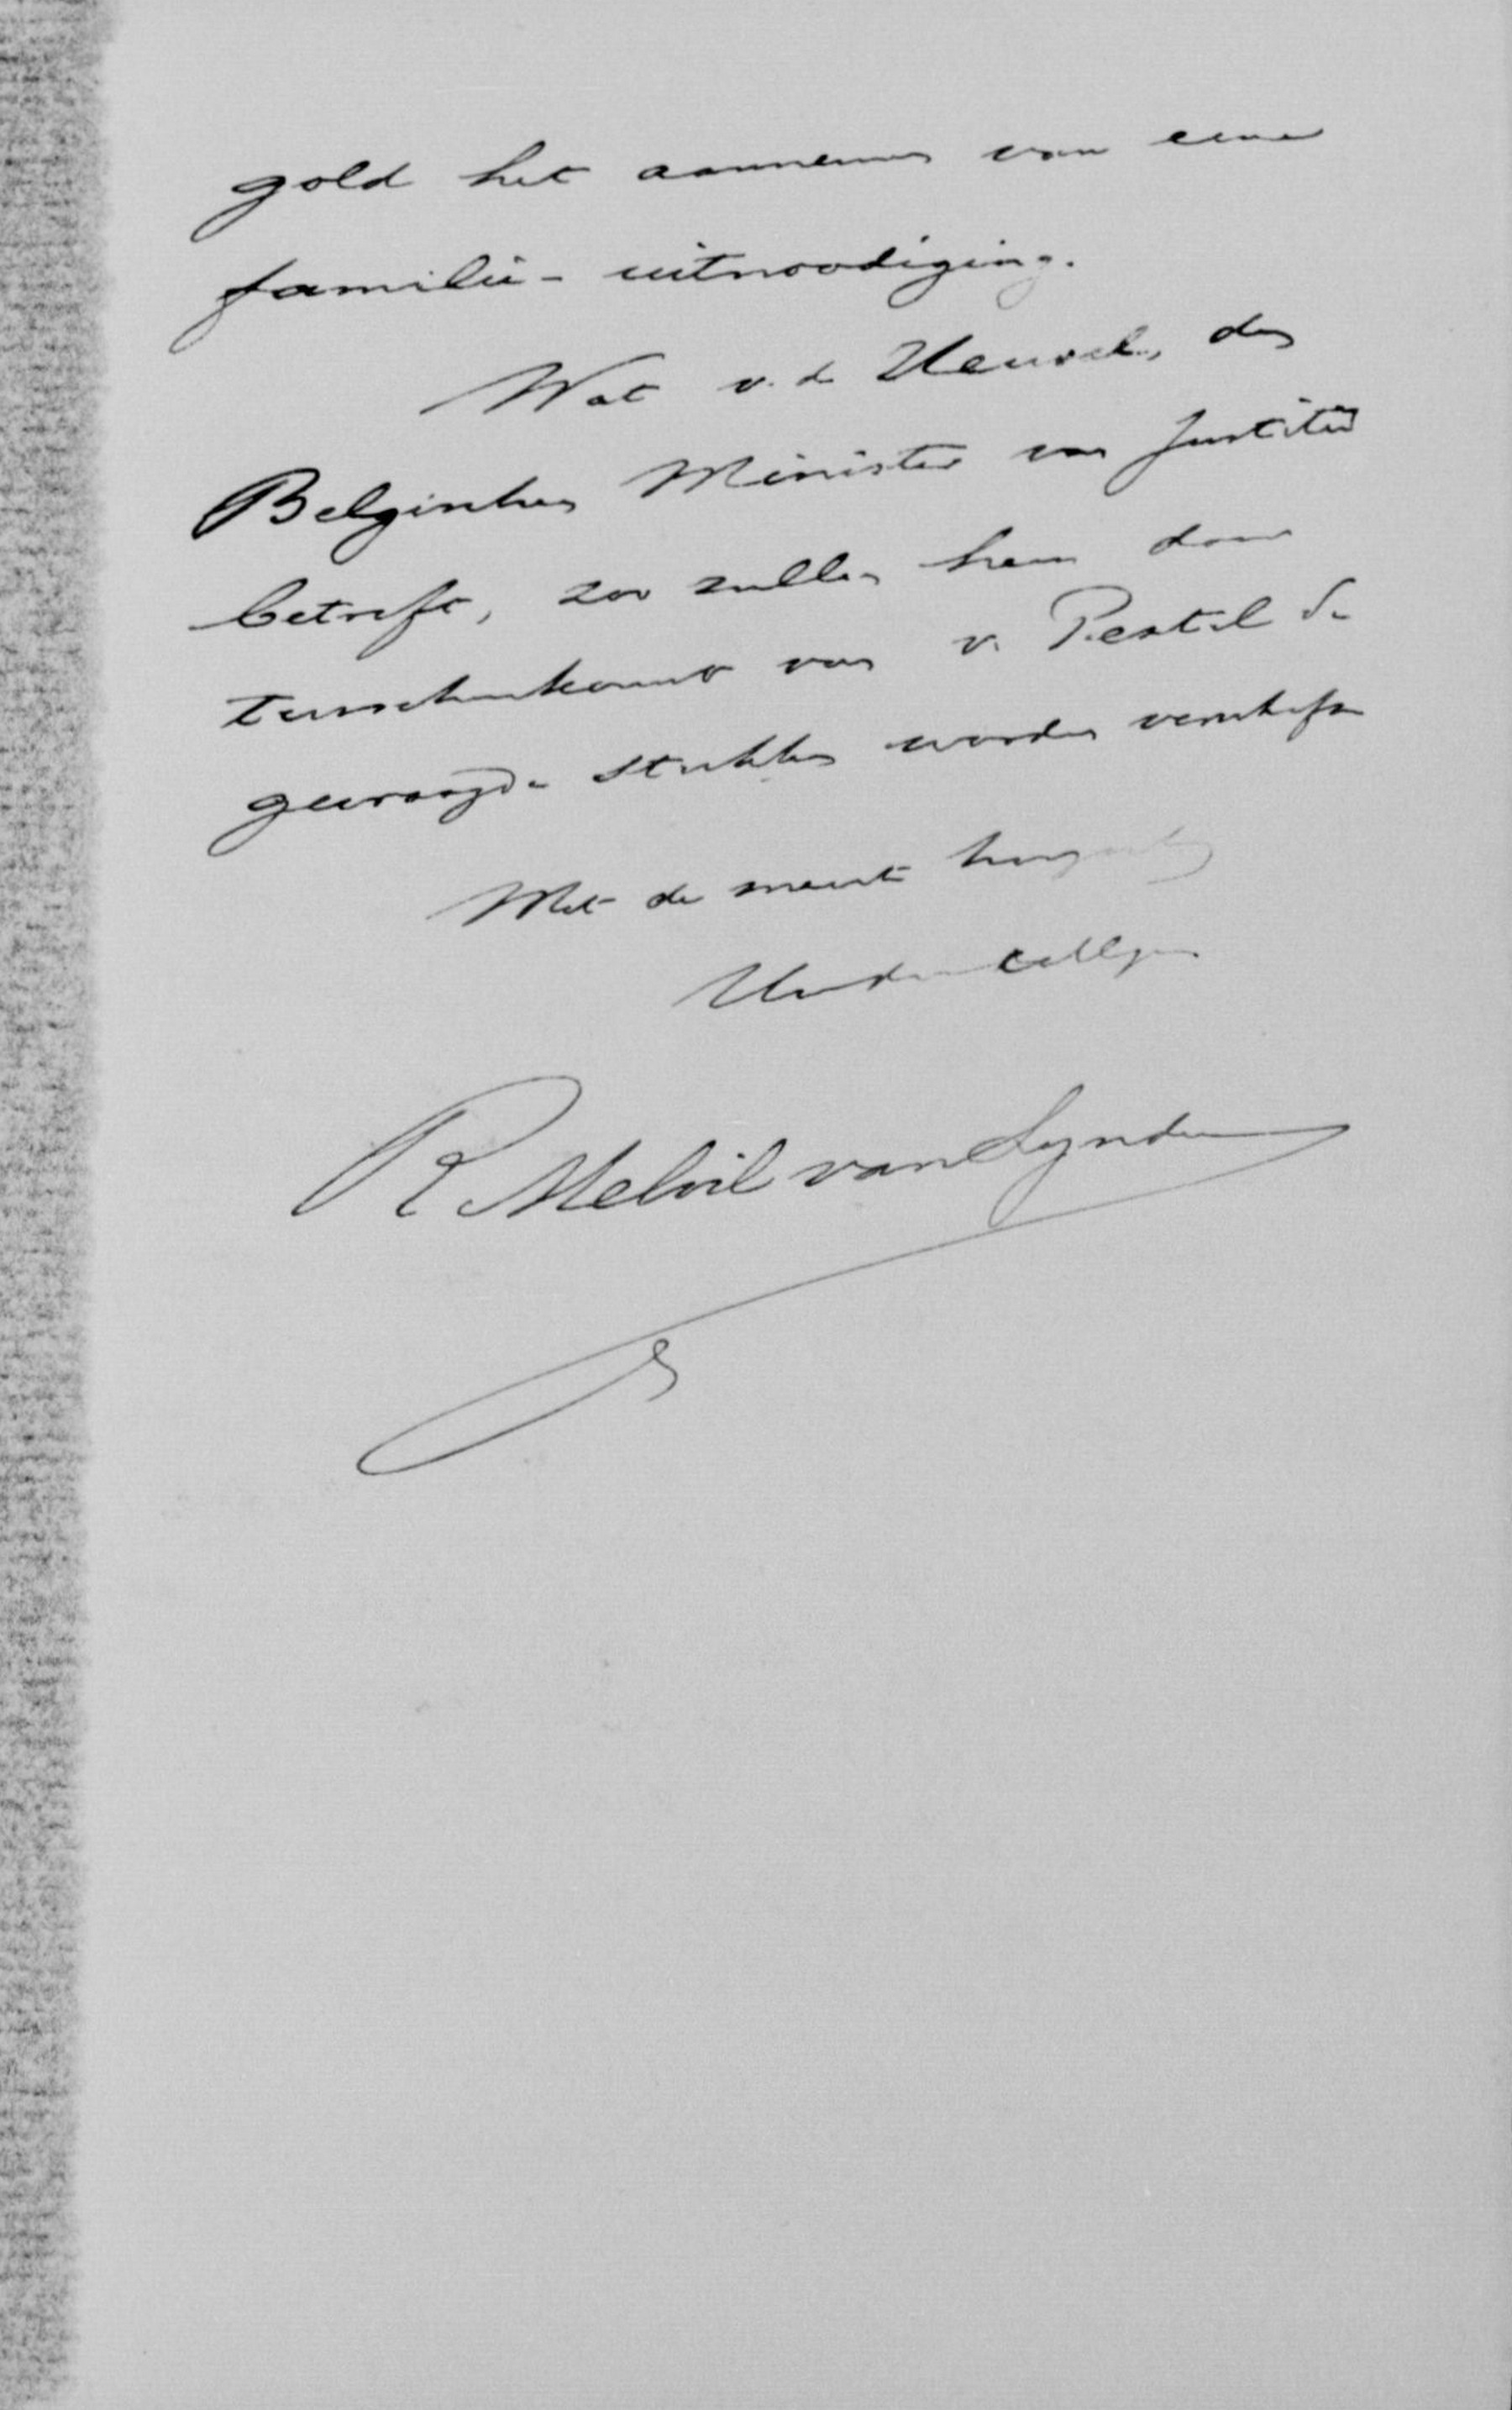 gold het aannemen van eene
familie-uitnoodiging.
Wat v. d. Heuvel, den
Belgischen Minister van Justitie
betreft, zoo zullen hem door
tusschenkomst van v. Pestel de
gevraagde stukken worden verschaft
Met de meeste hoogachting
Uw dw
R Melvil van Lynden